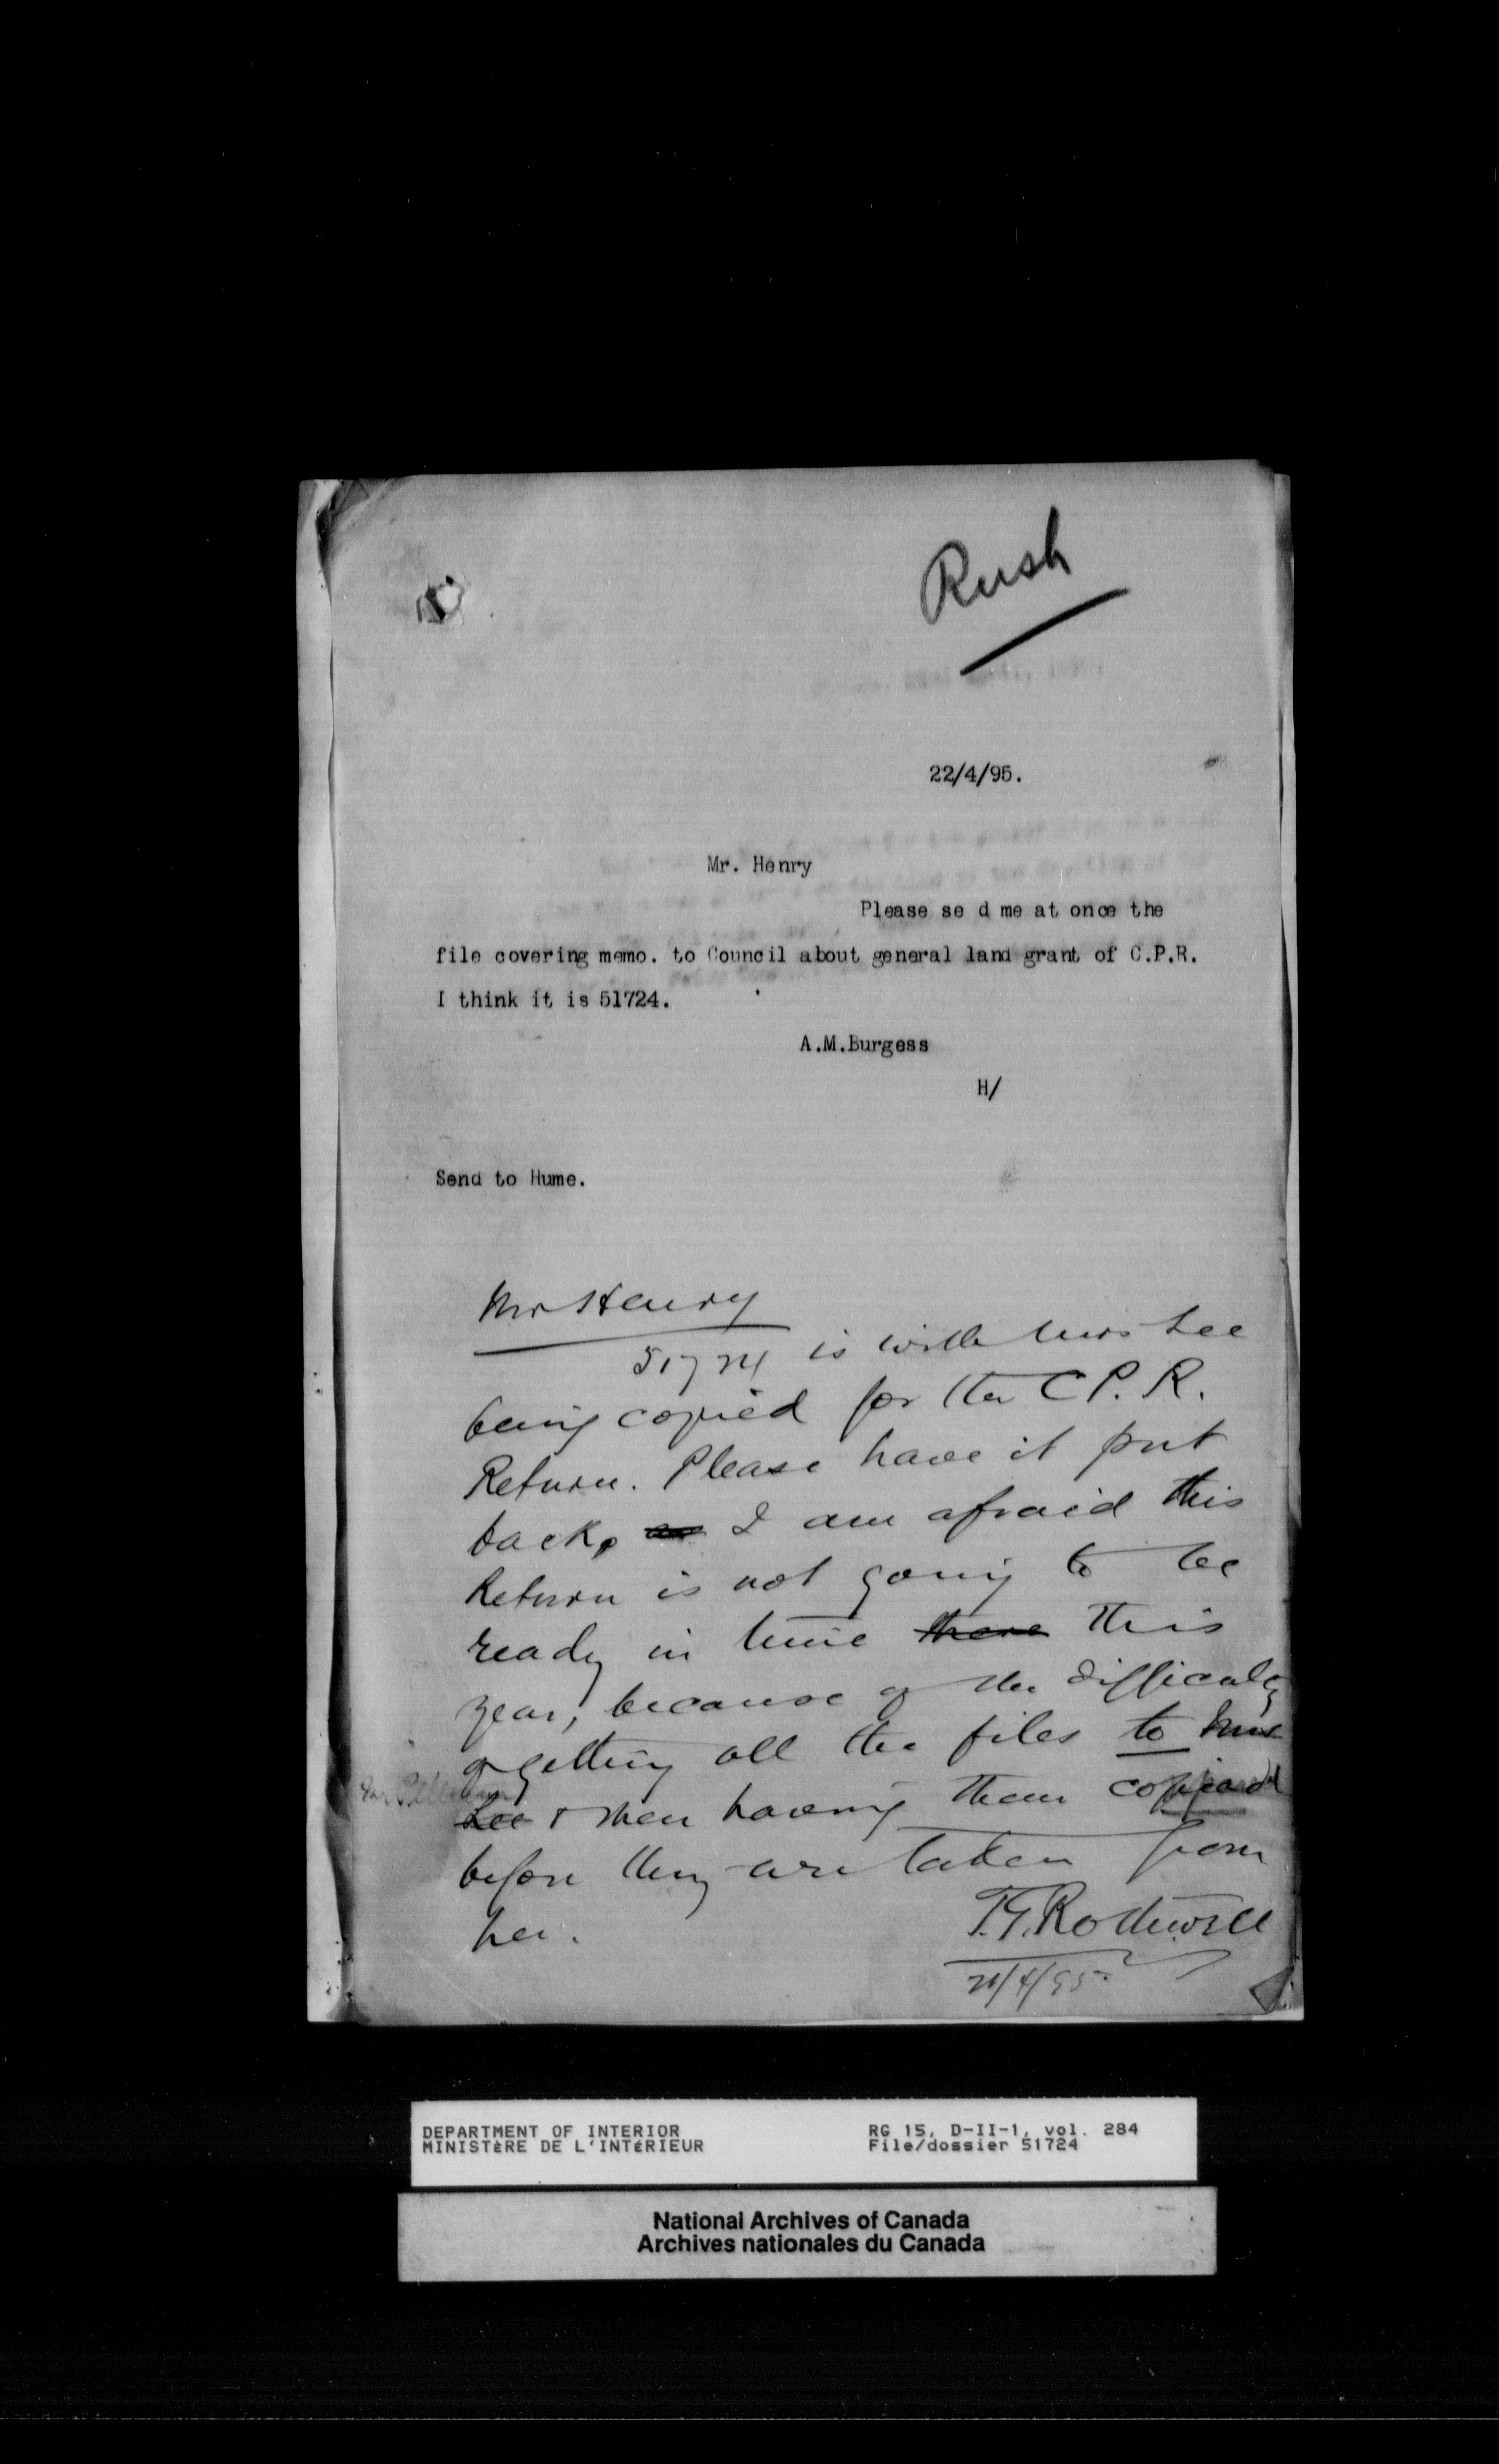 Rush
22/4/95.
Mr. Henry
Please se d me at once the
file covering memo. to Council about general land grant of C.P.R.
I think it is 51724.
A.M.Burgess
H/
Send to Hume.
Mr Henry
51724 is with Miss Lee
being copied for the C P. R.
Return. Please have it put
back, I am afraid this
Return is not going to be
ready in time there this
year, because of the difficulty
of getting all the files to Miss
Lee & then having them copied
before they are taken from
her.
T.G.Rothwell
/4/95.
DEPARTMENT OF INTERIOR
MINISTÈRE DE L'INTÉRIEUR
RG 15, D-II-1, vol. 284
File/dossier 51724
National Archives of Canada
Archives nationales du Canada